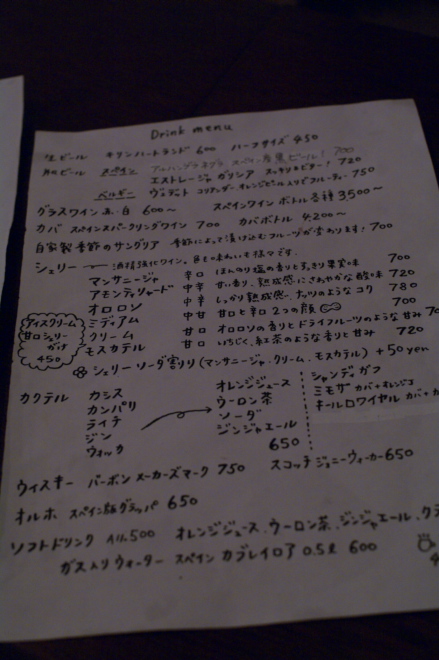 Drink menu
生ビール キリンハートランド 600 ハーフサイズ 450
瓶ビール スペイン アルハンブラ ネグラ スペイン産黒ビール! 700
エストレージャ ガリシア スッキリ&ビター! 720
ベルギー ヴェデット コリアンダー・オレンジピール入りでフルーティー 750
グラスワイン 赤・白 600〜 スペインワイン ボトル各種 3500〜
カバ スペインスパークリングワイン 700 カバボトル 4200〜
自家製 季節のサングリア 季節によって漬け込むフルーツが変わります! 700
シェリー 酒精強化ワイン。色も味わいも様々です。
マンサニージャ 辛口 ほんのり塩の香りとすっきり果実味 700
アモンティジャード 中辛 甘い香り、熟成感にさわやかな酸味 720
オロロソ 中辛 しっかり熟成感、ナッツのようなコク 780
ミディアム 中甘 甘口と辛口2つの顔 700
クリーム 甘口 オロロソの香りとドライフルーツのような甘み 70
モスカテル 甘口 いちじく、紅茶のような香りと甘み 720
アイスクリーム
甘口シェリー
がけ
450
シェリーソーダ割り(マンサニージャ・クリーム・モスカテル) +50yen
カクテル カシス オレンジジュース シャンディガフ
カンパリ ウーロン茶 ミモザ カバ+オレンジ
ライチ ソーダ キールロワイヤル カバ+カ
ジン ジンジャエール
ウォッカ 650
ウィスキー バーボン メーカーズマーク 750 スコッチ ジョニーウォーカー 650
オルホ スペイン版グラッパ 650
ソフトドリンク ALL 500 オレンジジュース、ウーロン茶、ジンジャエール、クラ
ガス入りウォーター スペイン カブレイロア 0.5ℓ 600